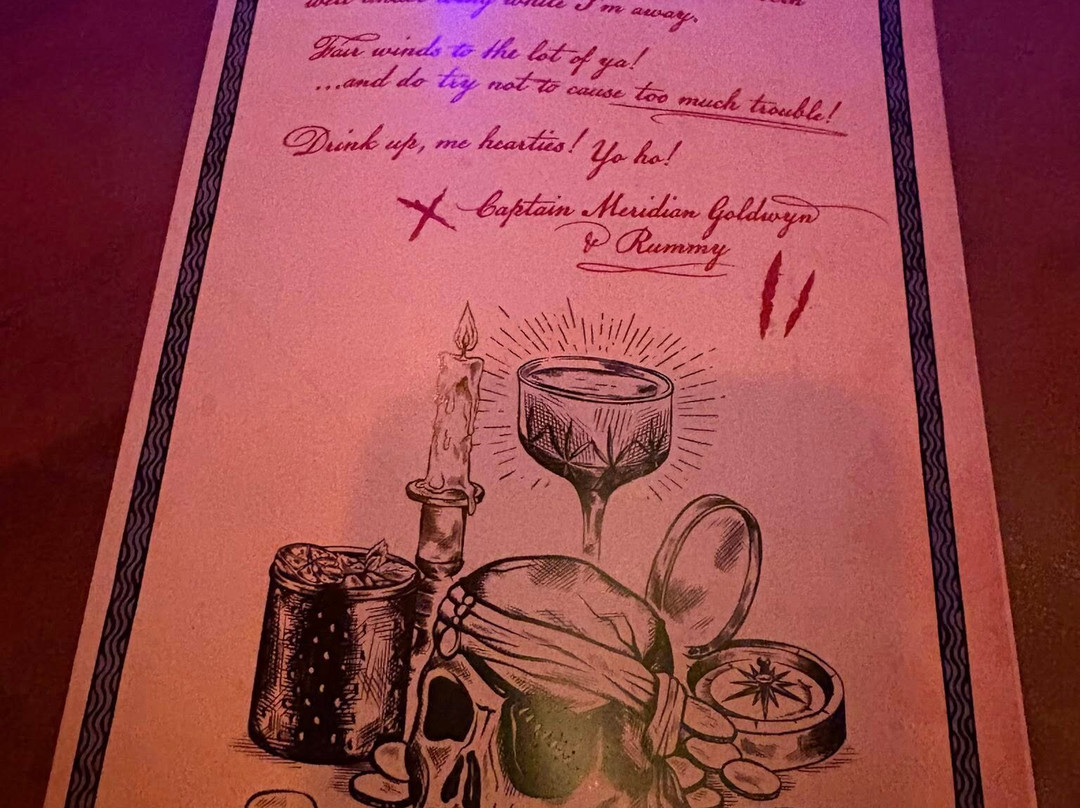 well under way while I'm away.
Fair winds to the lot of ya!
...and do try not to cause too much trouble!
Drink up, me hearties! Yo ho!
X Captain Meridian Goldwyn
& Rummy